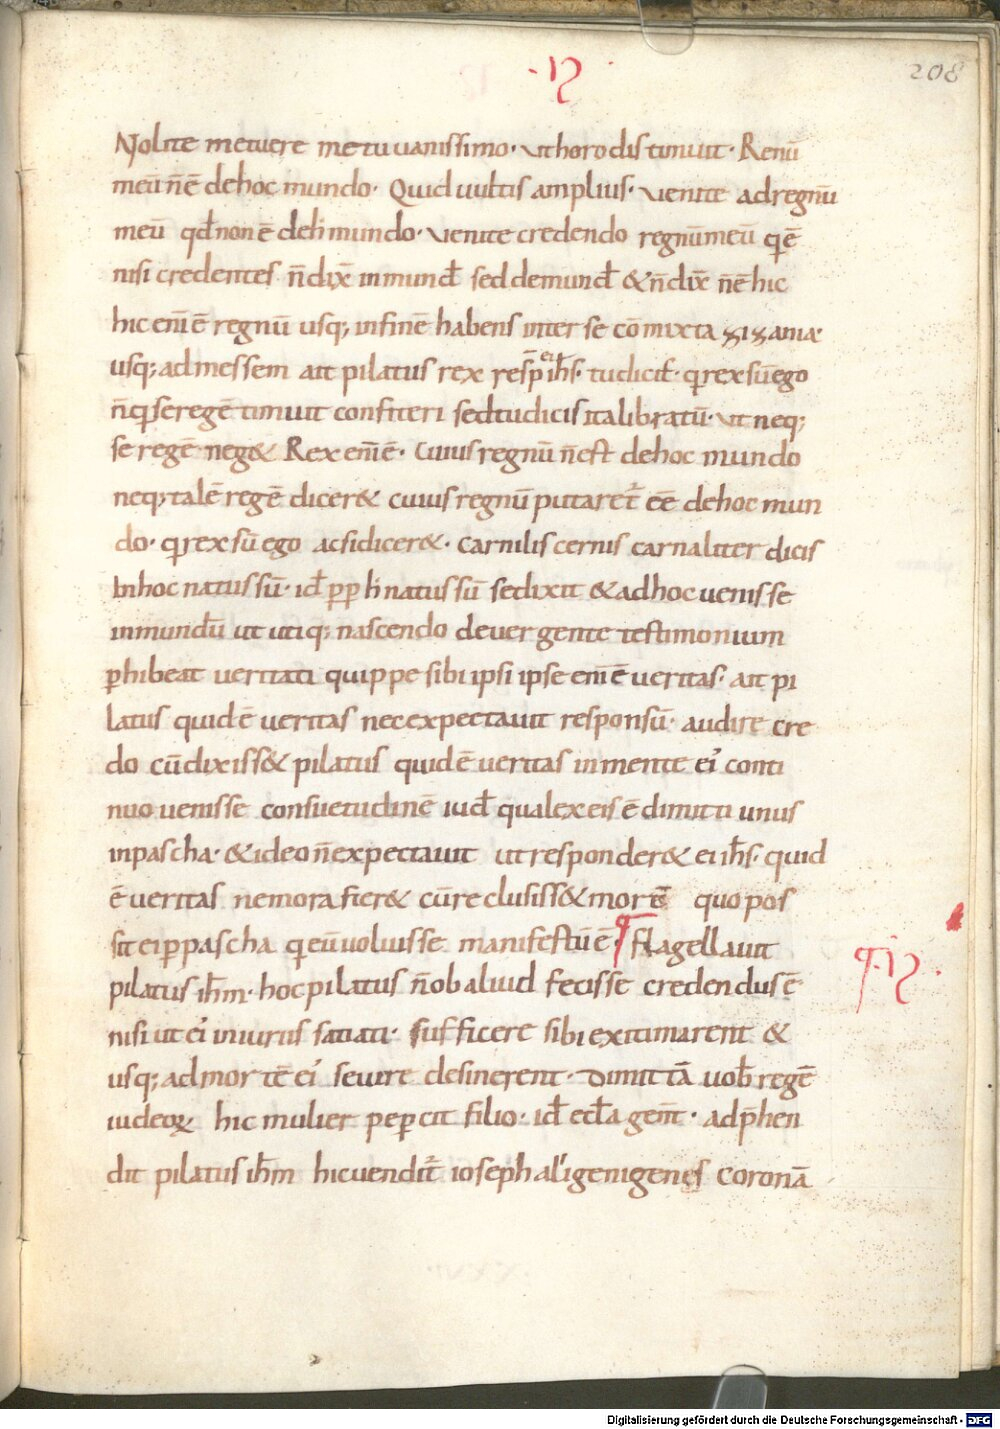 ·19·
208
Nolite metuere metu uanissimo· ut horodis timuit· Renū
meū n̄ ē dehoc mundo· Quid uultis amplius· venite adregnū
meū qđ non ē deh mundo· venite credendo regnūmeū q̄ ē
nisi credentes n̄ dix̄ inmund̄ sed demund̄ & n̄ dix̄ n̄ ē hic
hic enī ē regnū usq; infinē habens inter se cōmixta zizania
usq; admessem ait pilatus rex resp̄ ei ih̄s· tu dicis· q rex sū ego
n̄ q se regē timuit confiteri sed tu dicis ita libratū· ut neq;
se regē neg& Rex enī ē· Cuius regnū n̄ est dehoc mundo
neq; talē regē dicer& cuius regnū putaret̄ eē dehoc mun
do· q rex sū ego acsi dicer&· carnilis cernis carnaliter dicis
Inhoc natus sū· id p̄p h natus sū sedixit & adhoc uenisse
inmundū ut utiq; nascendo deuergente testimonium
p̄hibeat ueritati quippe sibi ipsi ipse enī ē ueritas· ait pi
latus quid ē ueritas nec expectauit responsū· audire cre
do cū dixiss& pilatus quid ē ueritas inmente ei' conti
nuo uenisse consuetudinē iud̄ qualex eis ē dimitti unus
inpascha· & ideo n̄ expectauit ut responder& ei ih̄s· quid
ē ueritas ne mora fier& cū reclusiss& morē quo pos
sit ei p̄ pascha q eū uoluisse manifestū ē· flagellauit
·19·
pilatus ih̄m· hoc pilatus n̄ ob aliud fecisse credendus ē
nisi ut ei' iniuriis satiati· sufficere sibi exitimarent &
usq; admortē ei' seuire desinerent· Dimittā uob̄ regē
iudeoꝝ hic mulier pepercit filio· id̄ eccl̄a gent̄· adp̄hen
dit pilatus ih̄m hic uendit̄ ioseph aligenigenes coronā
Digitalisierung gefördert durch die Deutsche Forschungsgemeinschaft - DFG